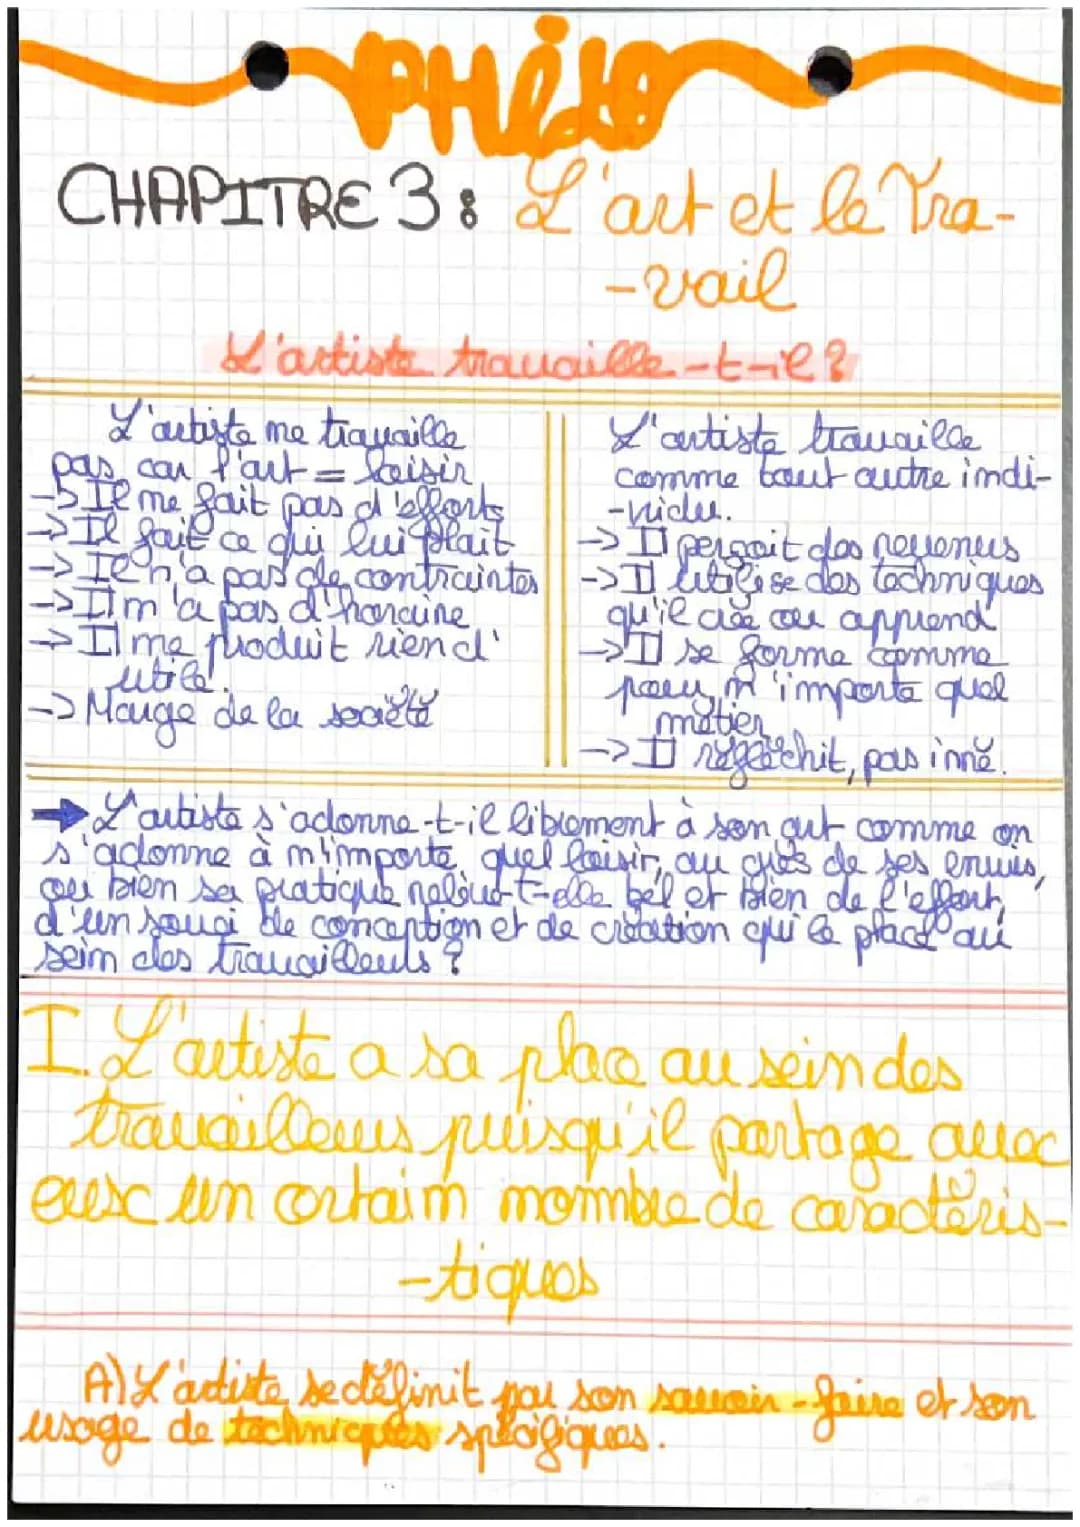 PHilo
CHAPITRE 3 : L'art et le Tra-
-vail
L'artiste travaille-t-il ?
L'artiste ne travaille
pas car l'art = loisir
-> Il ne fait pas d'efforts
-> Il fait ce qui lui plait
-> Il n'a pas de contraintes
-> Il n'a pas d'horaire
-> Il ne produit rien d'
utile.
-> Marge de la société
L'artiste travaille
comme tout autre indi-
-vidu.
-> Il perçoit des revenus
-> Il utilise des techniques
qu'il crée ou apprend
-> Il se forme comme
pour n'importe quel
métier
-> Il réfléchit, pas inné.
➡ L'artiste s'adonne-t-il librement à son art comme on
s'adonne à n'importe quel loisir, au grès de ses envies,
ou bien sa pratique relève-t-elle bel et bien de l'effort,
d'un souci de conception et de création qui le place au
sein des travailleurs ?
I. L'artiste a sa place au sein des
travailleurs puisqu'il partage avec
eux un certain nombre de caractéris-
-tiques
A) L'artiste se définit par son savoir-faire et son
usage de techniques spécifiques.